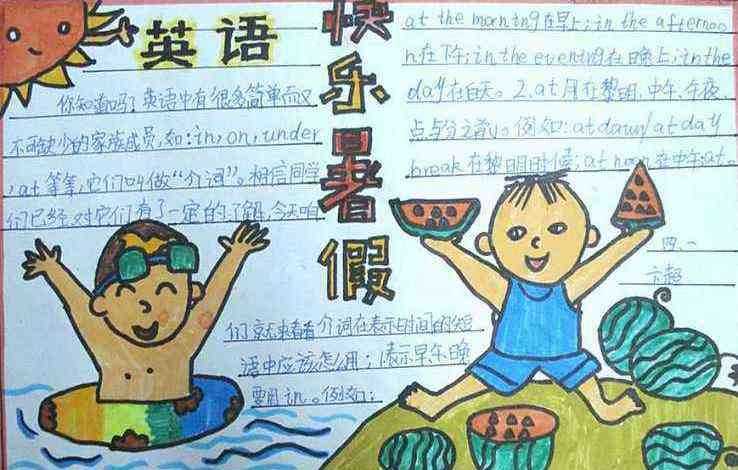 英语
快乐暑假
你知道吗?英语中有很多简单而又
不可缺少的家族成员,如:in,on,under
,at等等,它们叫做“介词”。相信同学
们已经对它们有了一定的了解,今天咱
们就来看看介词在表示时间的短
语中应该怎么用;1表示早午晚
要用in。例如:
at the morning在早上;in the afternoo
n在下午;in the evening在晚上;in the
day在白天。2.at用在黎明、中午、午夜、
点与分之前。例如:at dawn/at day
break在黎明时候;at noon在中午;at。
四、一